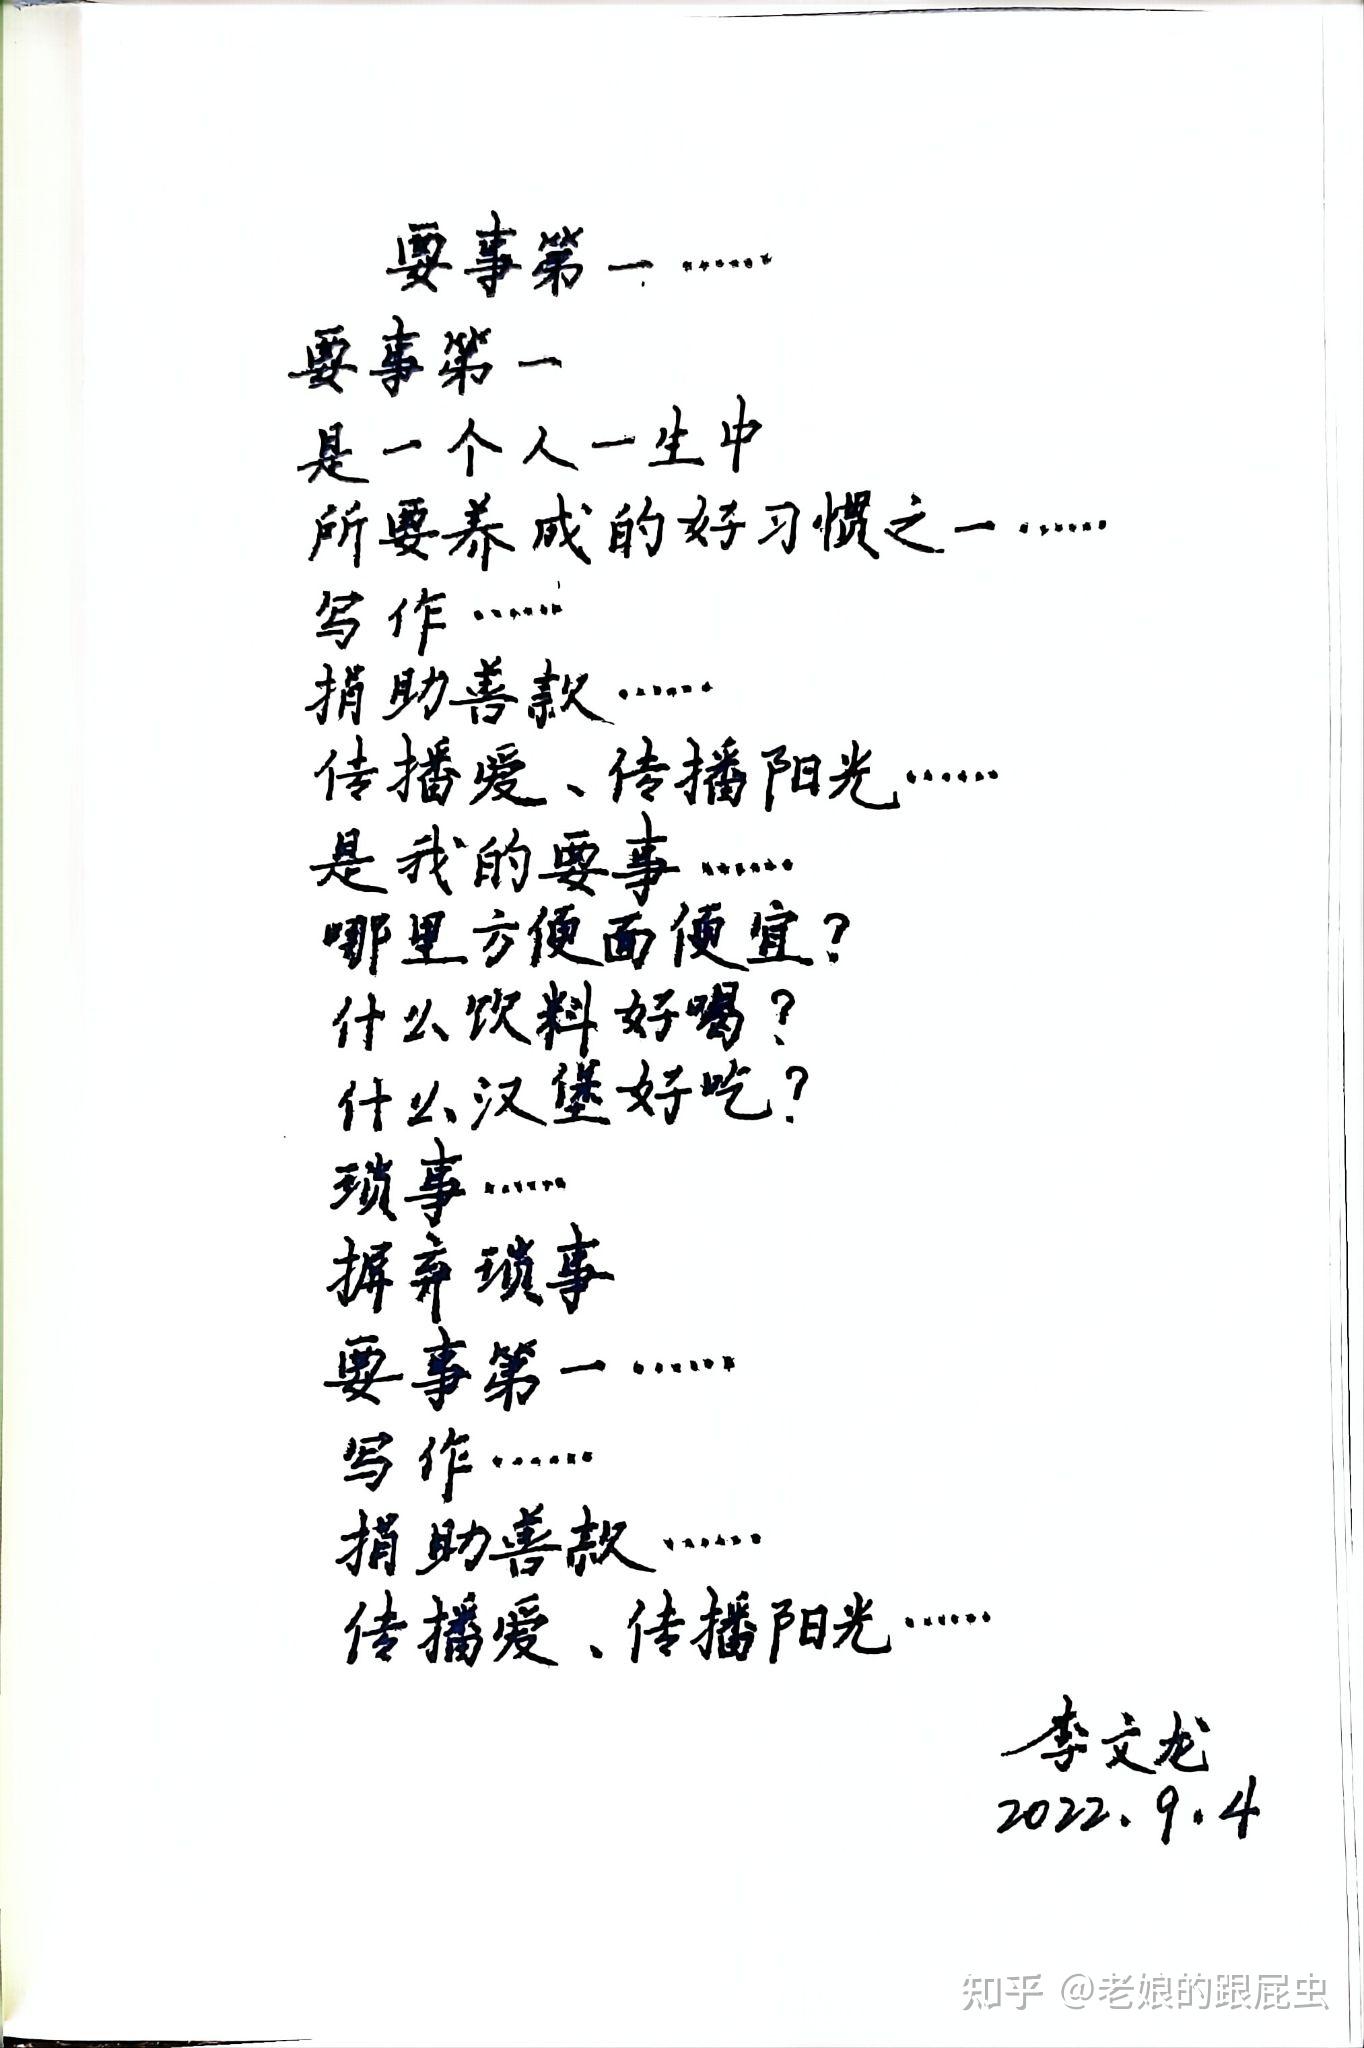 要事第一……
要事第一
是一个人一生中
所要养成的好习惯之一……
写作……
捐助善款……
传播爱、传播阳光……
是我的要事……
哪里方便面便宜？
什么饮料好喝？
什么汉堡好吃？
琐事……
摒弃琐事
要事第一……
写作……
捐助善款……
传播爱、传播阳光……
李文龙
2022.9.4
知乎 @老娘的跟屁虫